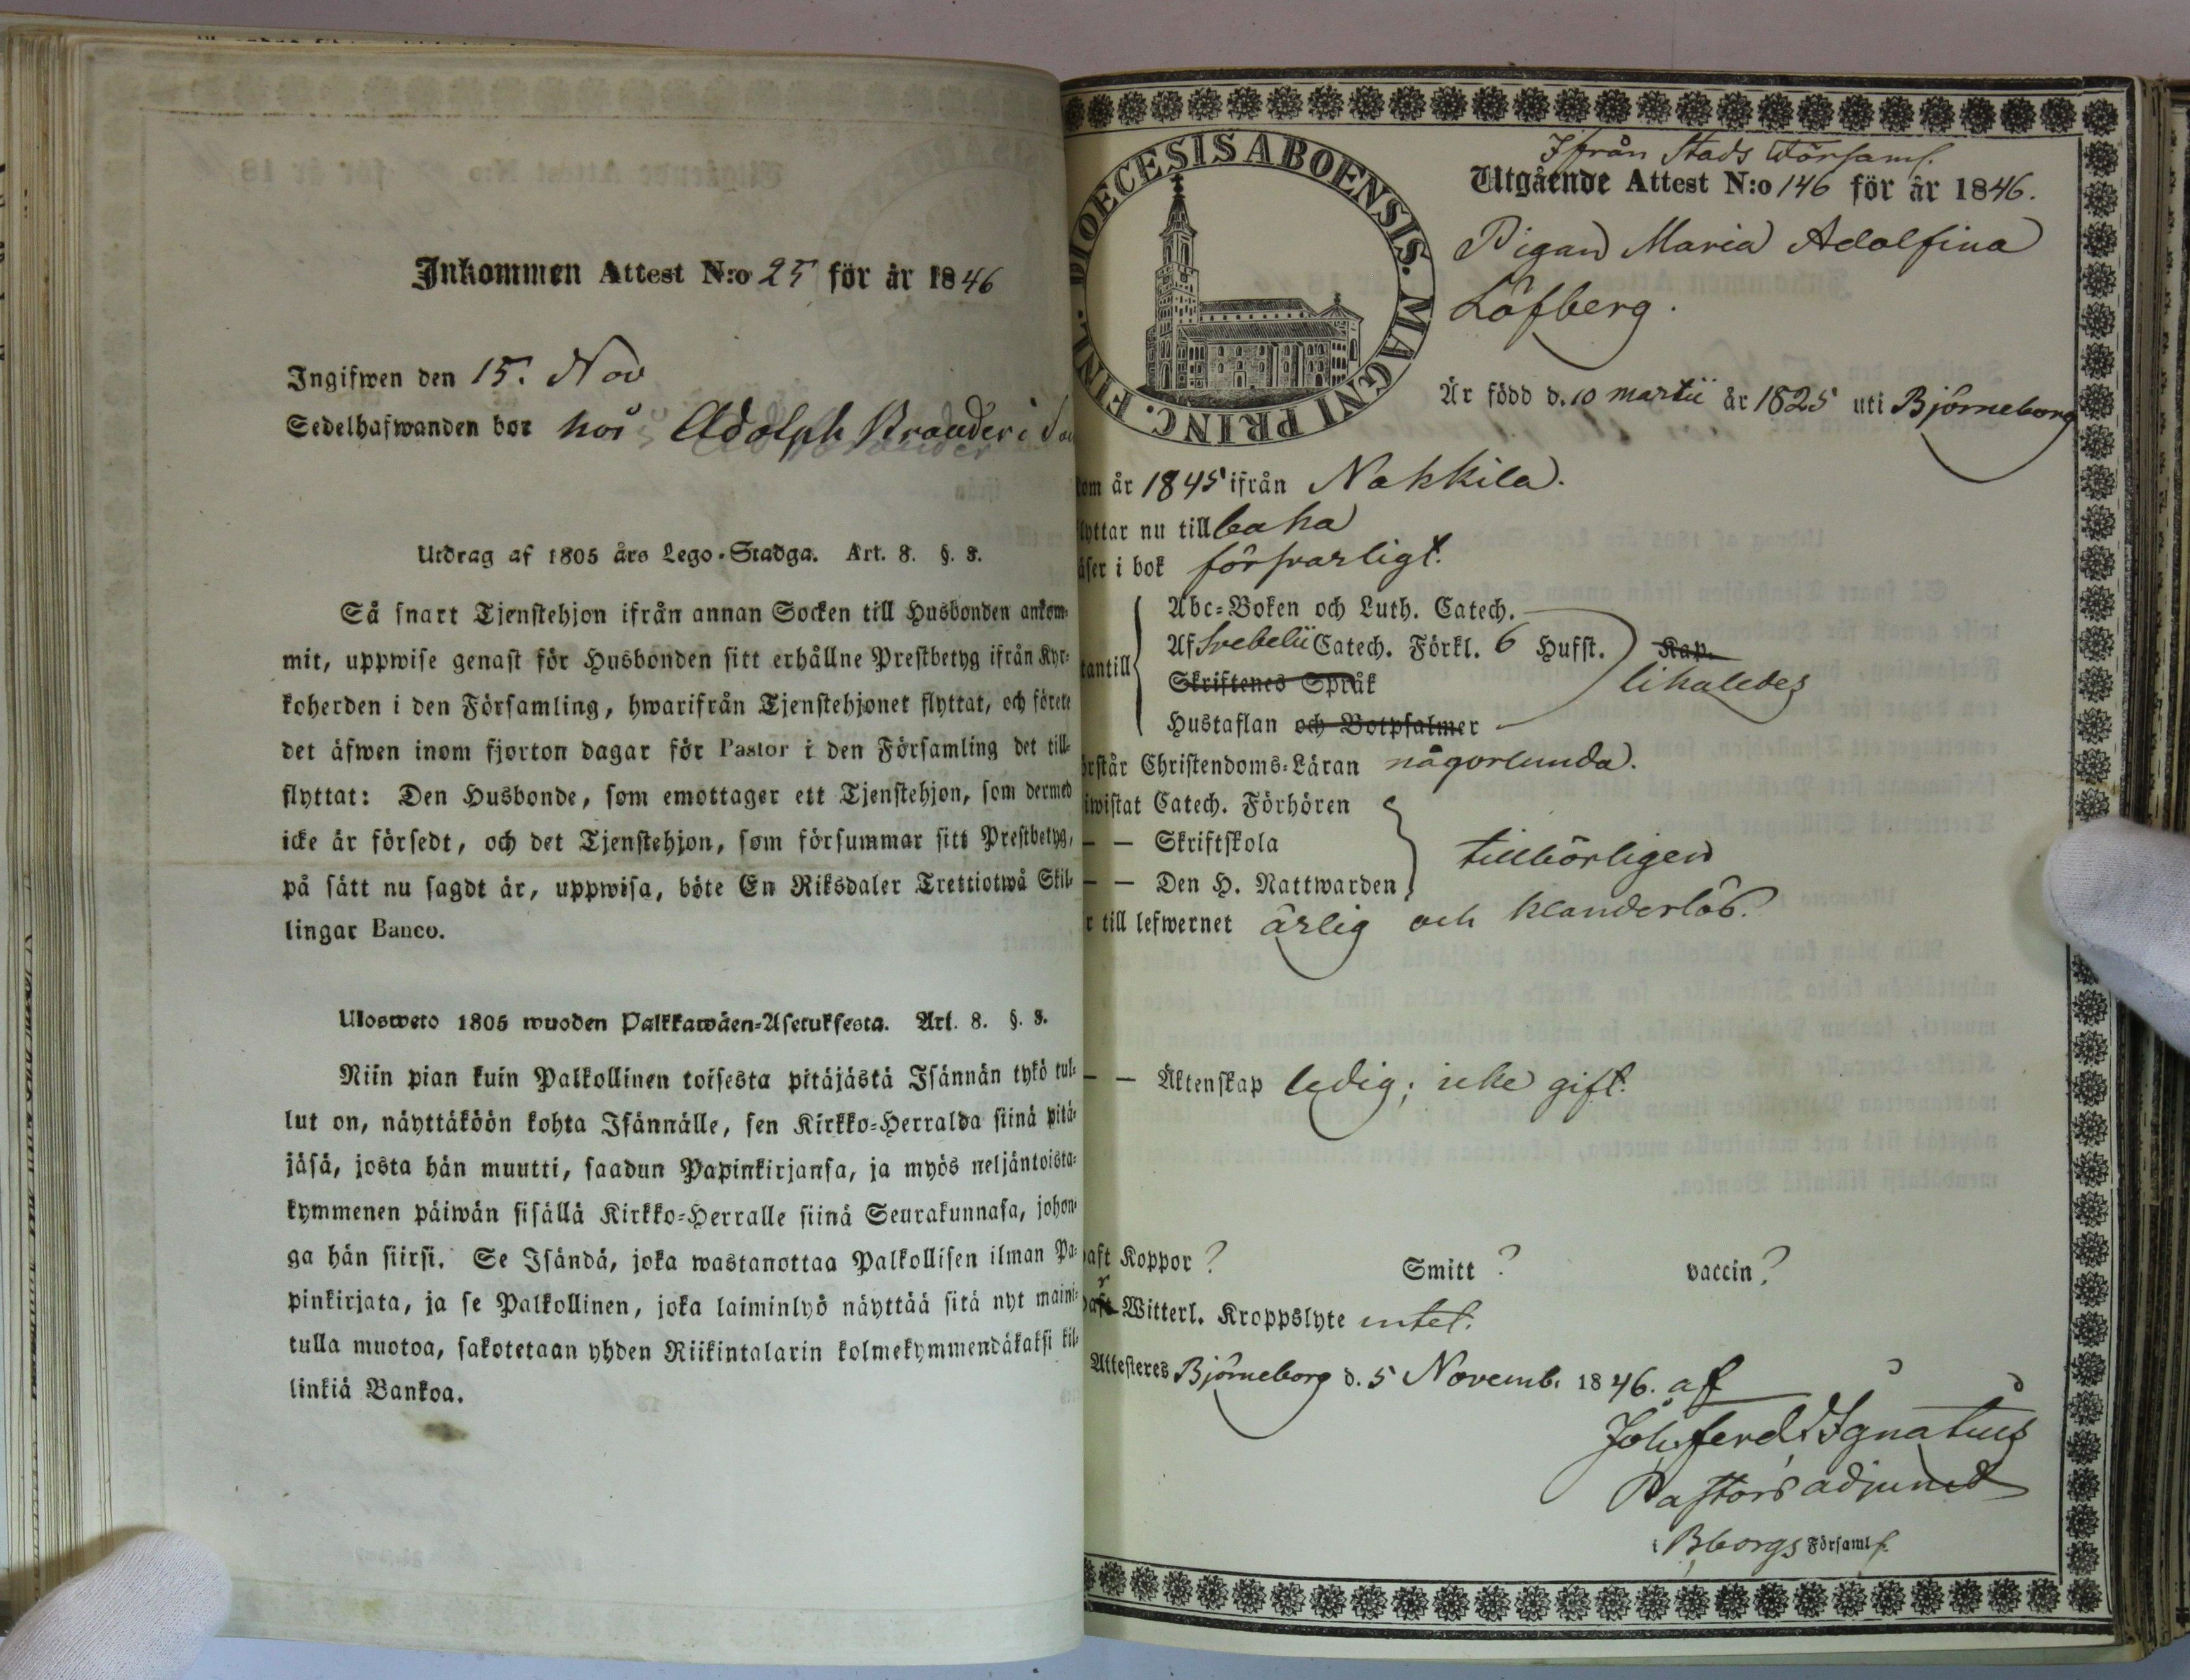 Inkommen Attest N:o 25 för år 1846
Ingifwen den 15. Nov
Sedelhafwanden bor hos Adolph Brander i
Utdrag af 1805 års Lego-Stadga. Art. 8. §. 8.
Så snart Tjenstehjon ifrån annan Socken till Husbonden ankom-
mit, uppwise genast för Husbonden sitt erhållne Prestbetyg ifrån Kyr-
koherden i den Församling, hwarifrån Tjenstehjonet flyttat, och förete
det äfwen inom fjorton dagar för Pastor i den Församling det till-
flyttat: Den Husbonde, som emottager ett Tjenstehjon, som dermed
icke är försedt, och det Tjenstehjon, som försummar sitt Prestbetyg,
på sätt nu sagdt är, uppwisa, böte En Riksdaler Trettiotwå Skil-
lingar Banco.
Ulosweto 1805 wuoden Palkkawäen-Asetuksesta. Art. 8. §. 8.
Niin pian kuin Palkollinen toisesta pitäjästä Isännän tykö tul-
lut on, näyttäköön kohta Isännälle, sen Kirkko-Herralda siinä pitä-
jäsä, josta hän muutti, saadun Papinkirjansa, ja myös neljäntoista-
kymmenen päiwän sisällä Kirkko-Herralle siinä Seurakunnasa, johon-
ga hän siirsi. Se Isändä, joka wastanottaa Palkollisen ilman Pa-
pinkirjata, ja se Palkollinen, joka laiminlyö näyttää sitä nyt maini-
tulla muotoa, sakotetaan yhden Riikintalarin kolmekymmendäkaksi kil-
linkiä Bankoa.
DIOECESIS ABOENSIS. MAGNI PRINC. FINL.
Ifrån Stads Församl.
Utgående Attest N:o 146 för år 1846.
Pigan Maria Adolfina
Löfberg.
Är född d. 10 martii år 1825 uti Björneborg
kom år 1845 ifrån Nakkila.
flyttar nu till baka
läser i bok försvarligt.
Abc-Boken och Luth. Catech.
Af Svebelii Catech. Förkl. 6 Hufst. Kap.
utantill Skriftenes Språk likaledes
Hustaflan och Botpsalmer
örstår Christendoms-Läran någorlunda.
iwistat Catech. Förhören
— — Skriftskola tillbörligen
— — Den H. Nattwarden
r till lefwernet ärlig och klanderlös.
— — Äktenskap ledig; icke gift.
haft Koppor ? Smitt ? vaccin ?
har Witterl. Kroppslyte intet.
Attesteres Björneborg d. 5 Novemb. 1846. af
Joh. Ferd. Ignatius
Pastors adjunct
i Bborgs Församl.